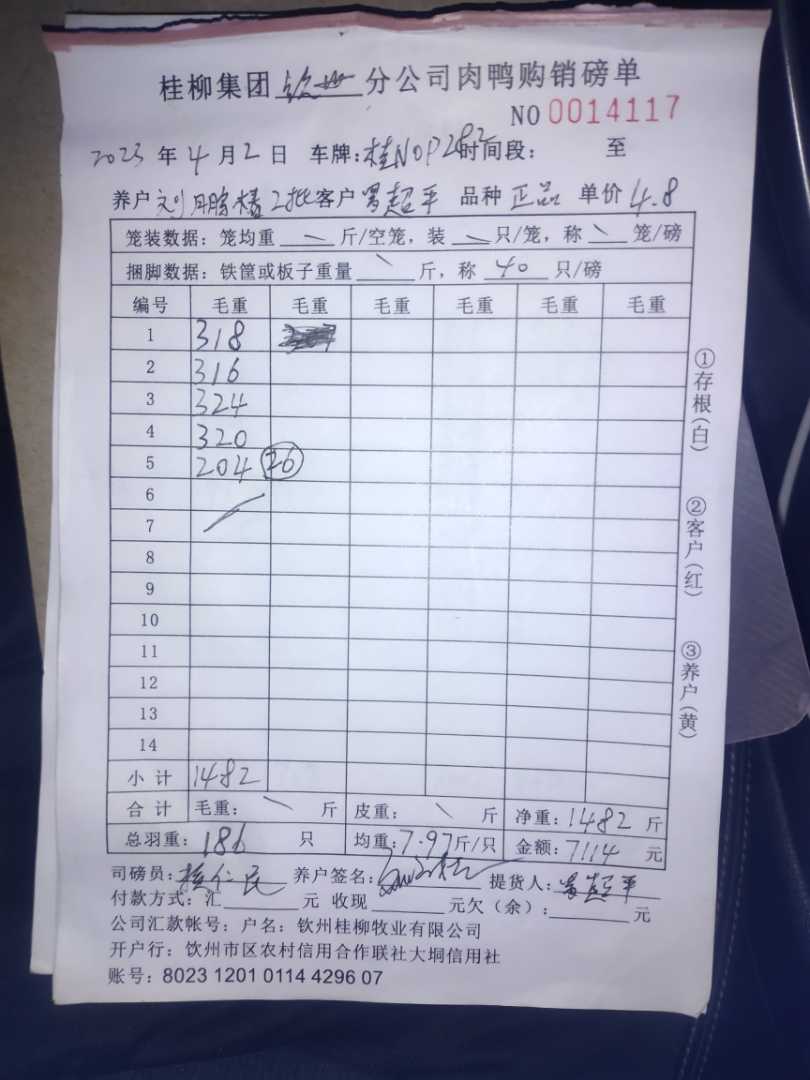 桂柳集团 钦州 分公司肉鸭购销磅单
NO 0014117
2023 年 4 月 2 日 车牌: 桂N0P282 时间段: 至
养户 刘鹏 2批 客户 罗超平 品种 正品 单价 4.8
笼装数据: 笼均重 \ 斤/空笼, 装 \ 只/笼, 称 \ 笼/磅
捆脚数据: 铁筐或板子重量 \ 斤, 称 40 只/磅
编号 毛重 毛重 毛重 毛重 毛重 毛重
1 318
2 316
3 324
4 320
5 204 26
6
7
8
9
10
11
12
13
14
小计 1482
合计 毛重: \ 斤 皮重: \ 斤 净重: 1482 斤
总羽重: 186 只 均重: 7.97 斤/只 金额: 7114 元
司磅员: 仁民 养户签名: 提货人: 罗超平
付款方式: 汇 元 收现 元欠(余): 元
公司汇款帐号: 户名: 钦州桂柳牧业有限公司
开户行: 钦州市区农村信用合作联社大垌信用社
账号: 8023 1201 0114 4296 07
①存根(白)
②客户(红)
③养户(黄)